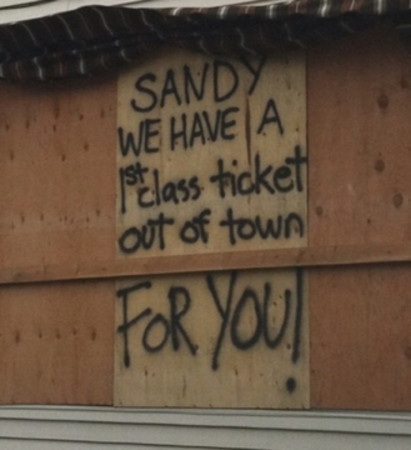 SANDY
WE HAVE A
1st class ticket
out of town
FOR YOU!